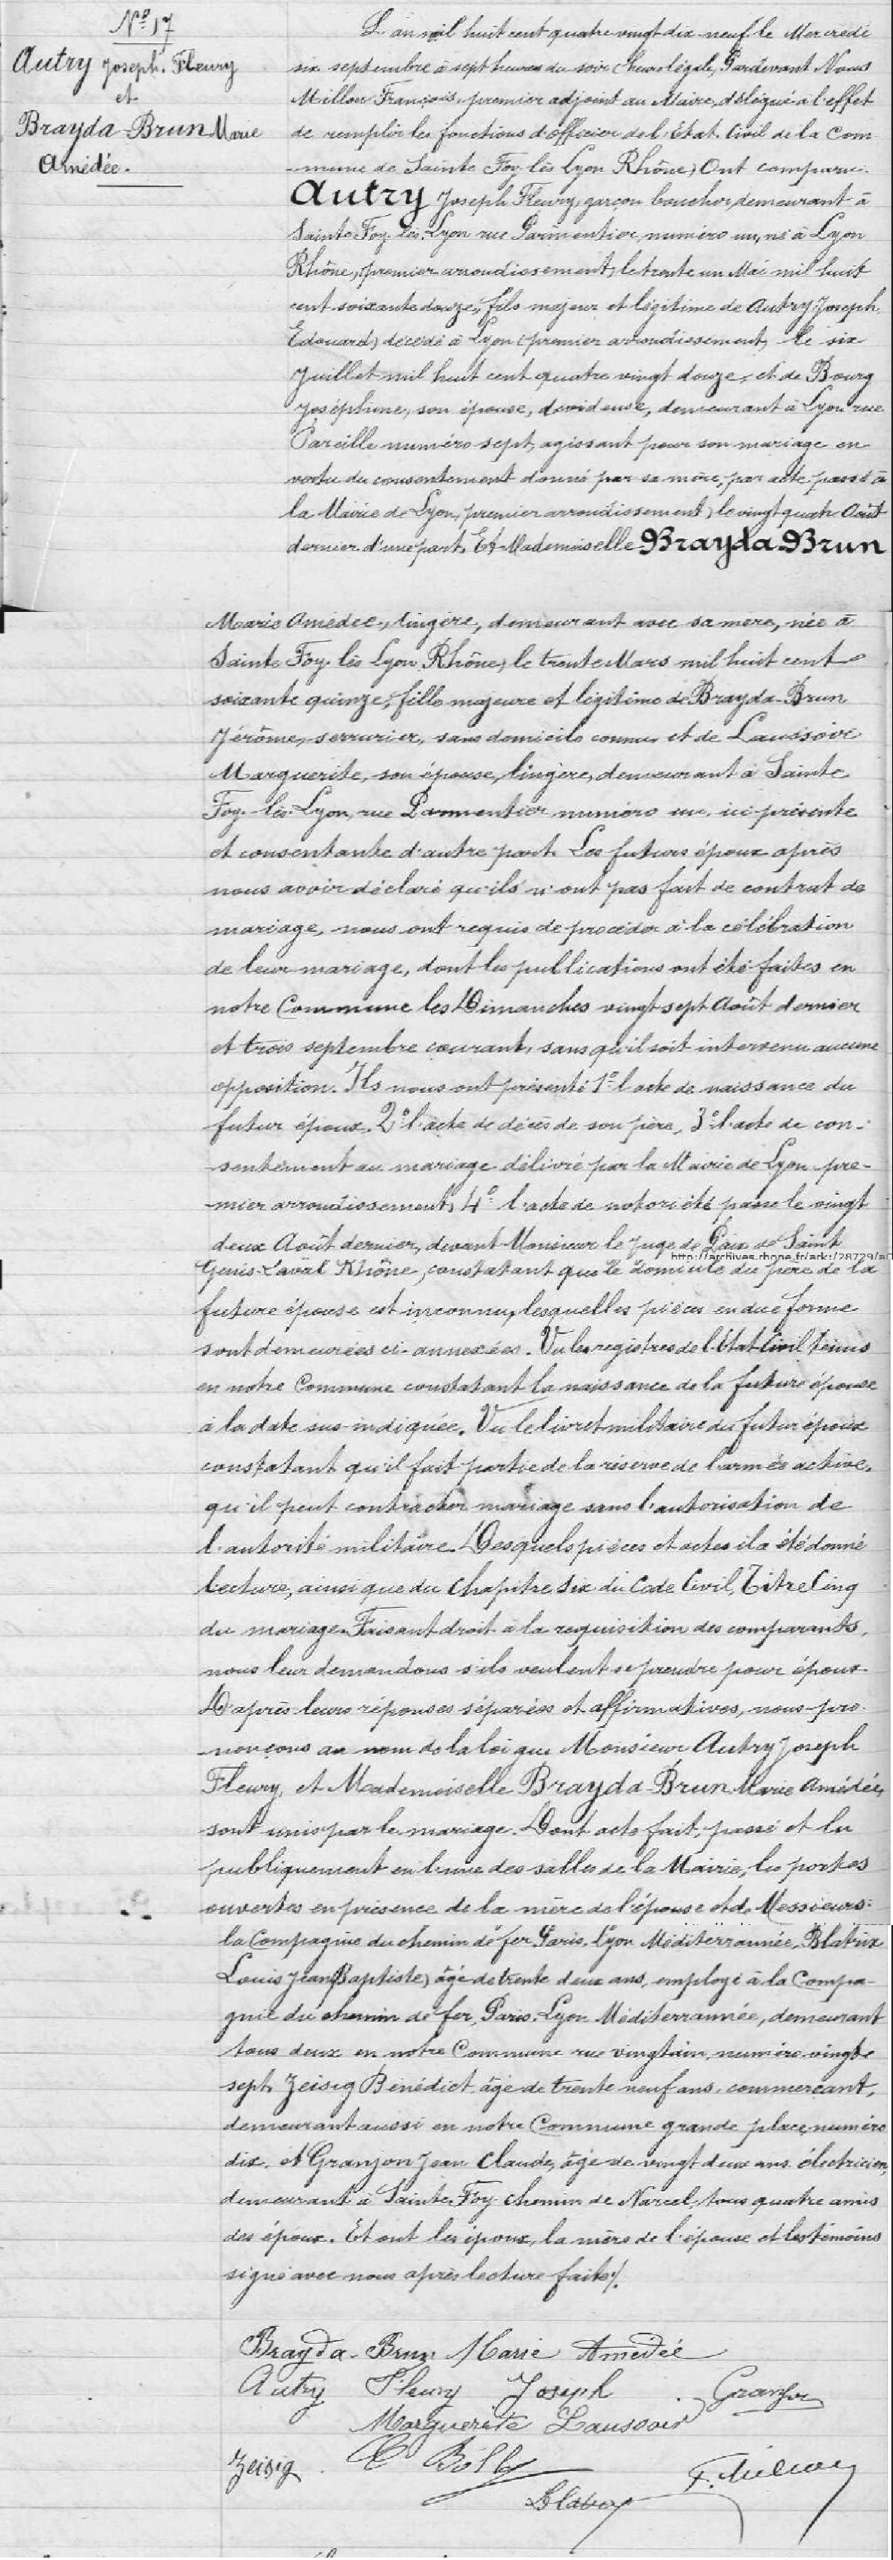 Nº 17
Autry Joseph Fleury
et
Brayda-Brun Marie
Amédée.
L'an mil huit cent quatre vingt dix neuf le Mercredi
six septembre à sept heures du soir (heure légale) Pardevant Nous
Millon François, premier adjoint au Maire, délégué à l'effet
de remplir les fonctions d'officier de l'Etat Civil de la Com
-mune de Sainte Foy lès Lyon (Rhône) Ont comparu:
Autry Joseph Fleury, garçon boucher, demeurant à
Sainte Foy lès Lyon rue Parmentier numéro un, né à Lyon
Rhône, (premier arrondissement) le trente un Mai mil huit
cent soixante douze, fils majeur et légitime de Autry Joseph
Edouard, décédé à Lyon (premier arrondissement) le six
Juillet mil huit cent quatre vingt douze, et de Bourg
Joséphine, son épouse, dévideuse, demeurant à Lyon rue
Pareille numéro sept, agissant pour son mariage en
vertu du consentement donné par sa mère, par acte passé à
la Mairie de Lyon (premier arrondissement) le vingt quatre Août
dernier d'une part. Et Mademoiselle Brayda-Brun
Marie Amédée, lingère, demeurant avec sa mère, née à
Sainte Foy lès Lyon (Rhône) le trente Mars mil huit cent
soixante quinze, fille majeure et légitime de Brayda-Brun
Jérôme, serrurier, sans domicile connu et de Laussoir
Marguerite, son épouse, lingère, demeurant à Sainte
Foy-lès-Lyon, rue Parmentier numéro un, ici présente
et consentante d'autre part. Les futurs époux après
nous avoir déclaré qu'ils n'ont pas fait de contrat de
mariage, nous ont requis de procéder à la célébration
de leur mariage, dont les publications ont été faites en
notre Commune les Dimanches vingt sept Août dernier
et trois septembre courant, sans qu'il soit intervenu aucune
opposition. Ils nous ont présenté 1º l'acte de naissance du
futur époux, 2º l'acte de décès de son père, 3º l'acte de con-
sentement au mariage délivré par la Mairie de Lyon pre-
mier arrondissement, 4º l'acte de notoriété passé le vingt
deux Août dernier, devant Monsieur le Juge de Paix de Saint
http://archives.rhone.fr/ark:/28729/a0
Genis-Laval Rhône, constatant que le domicile du père de la
future épouse est inconnu, lesquelles pièces en due forme
sont demeurées ci-annexées. Vu les registres de l'Etat Civil tenus
en notre Commune constatant la naissance de la future épouse
à la date sus-indiquée. Vu le livret militaire du futur époux
constatant qu'il fait partie de la réserve de l'armée active,
qu'il peut contracter mariage sans l'autorisation de
l'autorité militaire. Desquels pièces et actes il a été donné
lecture, ainsi que du chapitre six du Code Civil, Titre Cinq
du mariage. Faisant droit à la requisition des comparants,
nous leur demandons s'ils veulent se prendre pour époux
D'après leurs réponses séparées et affirmatives, nous pro
nonçons au nom de la loi que Monsieur Autry Joseph
Fleury, et Mademoiselle Brayda-Brun Marie Amédée,
sont unis par le mariage. Dont acte fait, passé et lu
publiquement en l'une des salles de la Mairie, les portes
ouvertes en présence de la mère de l'épouse et de Messieurs:
la Compagnie du chemin de fer Paris Lyon Méditerrannée, Blatrix
Louis Jean (Baptiste) âgé de trente deux ans, employé à la Compa-
gnie du chemin de fer, Paris-Lyon Méditerrannée, demeurant
tous deux en notre Commune rue vingtain, numéro vingt
sept, Zeisig Bénédict âgé de trente neuf ans, commerçant,
demeurant aussi en notre Commune grande place numéro
dix, et Granjon Jean Claude, âgé de vingt deux ans électricien,
demeurant à Sainte Foy chemin de Narcel, tous quatre amis
des époux. Et ont les époux, la mère de l'épouse et les témoins
signé avec nous après lecture faite/.
Brayda-Brun Marie Amédée
Autry Fleury Joseph Granjon
Marguerite Laussoir
Zeisig